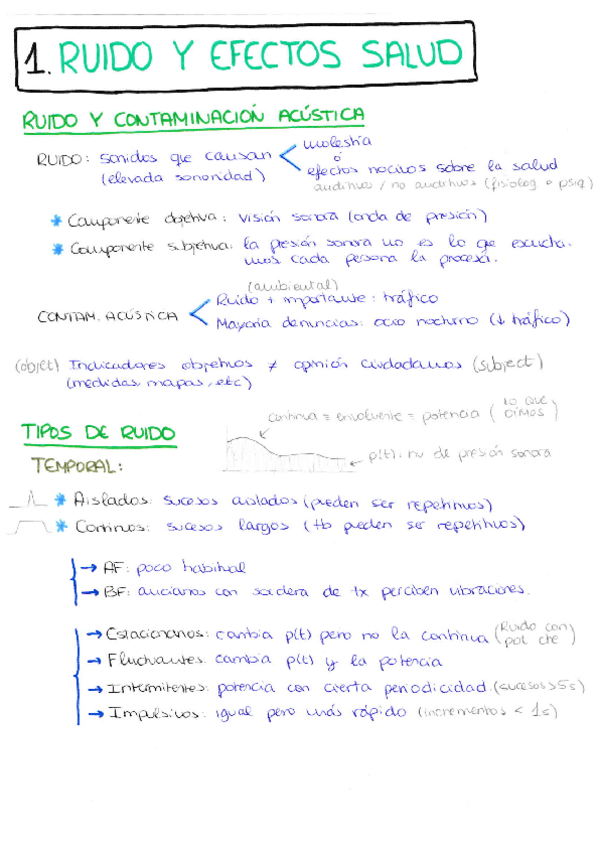 1. RUIDO Y EFECTOS SALUD
RUIDO Y CONTAMINACIÓN ACÚSTICA
RUIDO: sonidos que causan molestia
(elevada sonoridad) ó
efectos nocivos sobre la salud
auditivos / no auditivos (fisiolog o psiq)
* Componente objetiva: visión sonora (onda de presión)
* Componente subjetiva: la presión sonora no es lo que escucha-
mos cada persona la procesa.
(ambiental)
Ruido + importante: tráfico
CONTAM. ACÚSTICA
Mayoría denuncias: ocio nocturno (↓ tráfico)
(objet) Indicadores objetivos ≠ opinión ciudadanos (subject)
(medidas, mapas, etc)
continua = envolvente = potencia (LO QUE OÍMOS)
TIPOS DE RUIDO
p(t): niv de presión sonora
TEMPORAL:
* Aislados: sucesos aislados (pueden ser repetitivos)
* Continuos: sucesos largos (tb pueden ser repetitivos)
→ AF: poco habitual
→ BF: ancianos con sordera de tx perciben vibraciones.
→ Estacionarios: cambia p(t) pero no la continua (Ruido con pot cte)
→ Fluctuantes: cambia p(t) y la potencia
→ Intermitentes: potencia con cierta periodicidad. (sucesos > 5s)
→ Impulsivos: igual pero más rápido (incrementos < 1s)